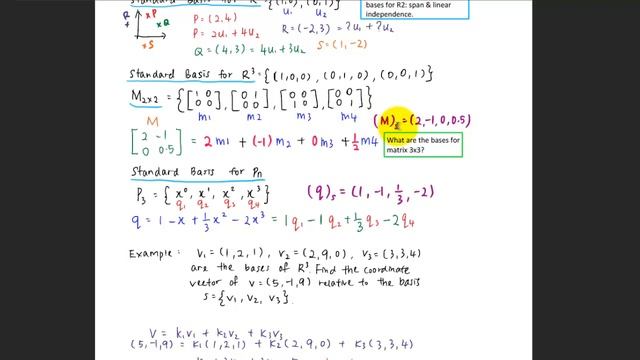 Standard Basis for R
bases for R2: span & linear independence.
R P
Q
S
P = (2,4)
P = 2u1 + 4u2
Q = (4,3) = 4u1 + 3u2
u1 u2
R = (-2,3) = ?u1 + ?u2
S = (1,-2)
Standard Basis for R³ = {(1,0,0), (0,1,0), (0,0,1)}
M2x2 = {[1 0 0 0], [0 1 0 0], [0 0 1 0], [0 0 0 1]}
m1 m2 m3 m4
M
(M)s = (2,-1,0,0.5)
[2 -1 0 0.5] = 2m1 + (-1)m2 + 0m3 + ½m4
What are the bases for matrix 3x3?
Standard Basis for Pn
P3 = {x⁰, x¹, x², x³}
q1 q2 q3 q4
(q)s = (1, -1, 1/3, -2)
q = 1 - x + 1/3x² - 2x³ = 1q1 - 1q2 + 1/3q3 - 2q4
Example: v1 = (1,2,1), v2 = (2,9,0), v3 = (3,3,4)
are the bases of R³. Find the coordinate
vector of v = (5,-1,9) relative to the basis
S = {v1, v2, v3}.
V = k1v1 + k2v2 + k3v3
(5,-1,9) = k1(1,2,1) + k2(2,9,0) + k3(3,3,4)